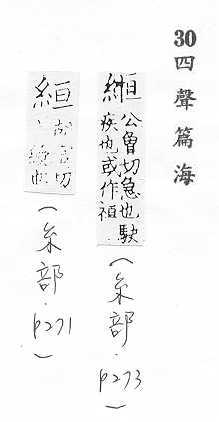 30 四聲篇海
縆
公曾切急也駛
疾也或作
(糸部．P273)
絙
胡官切
緩
(糸部．P271)